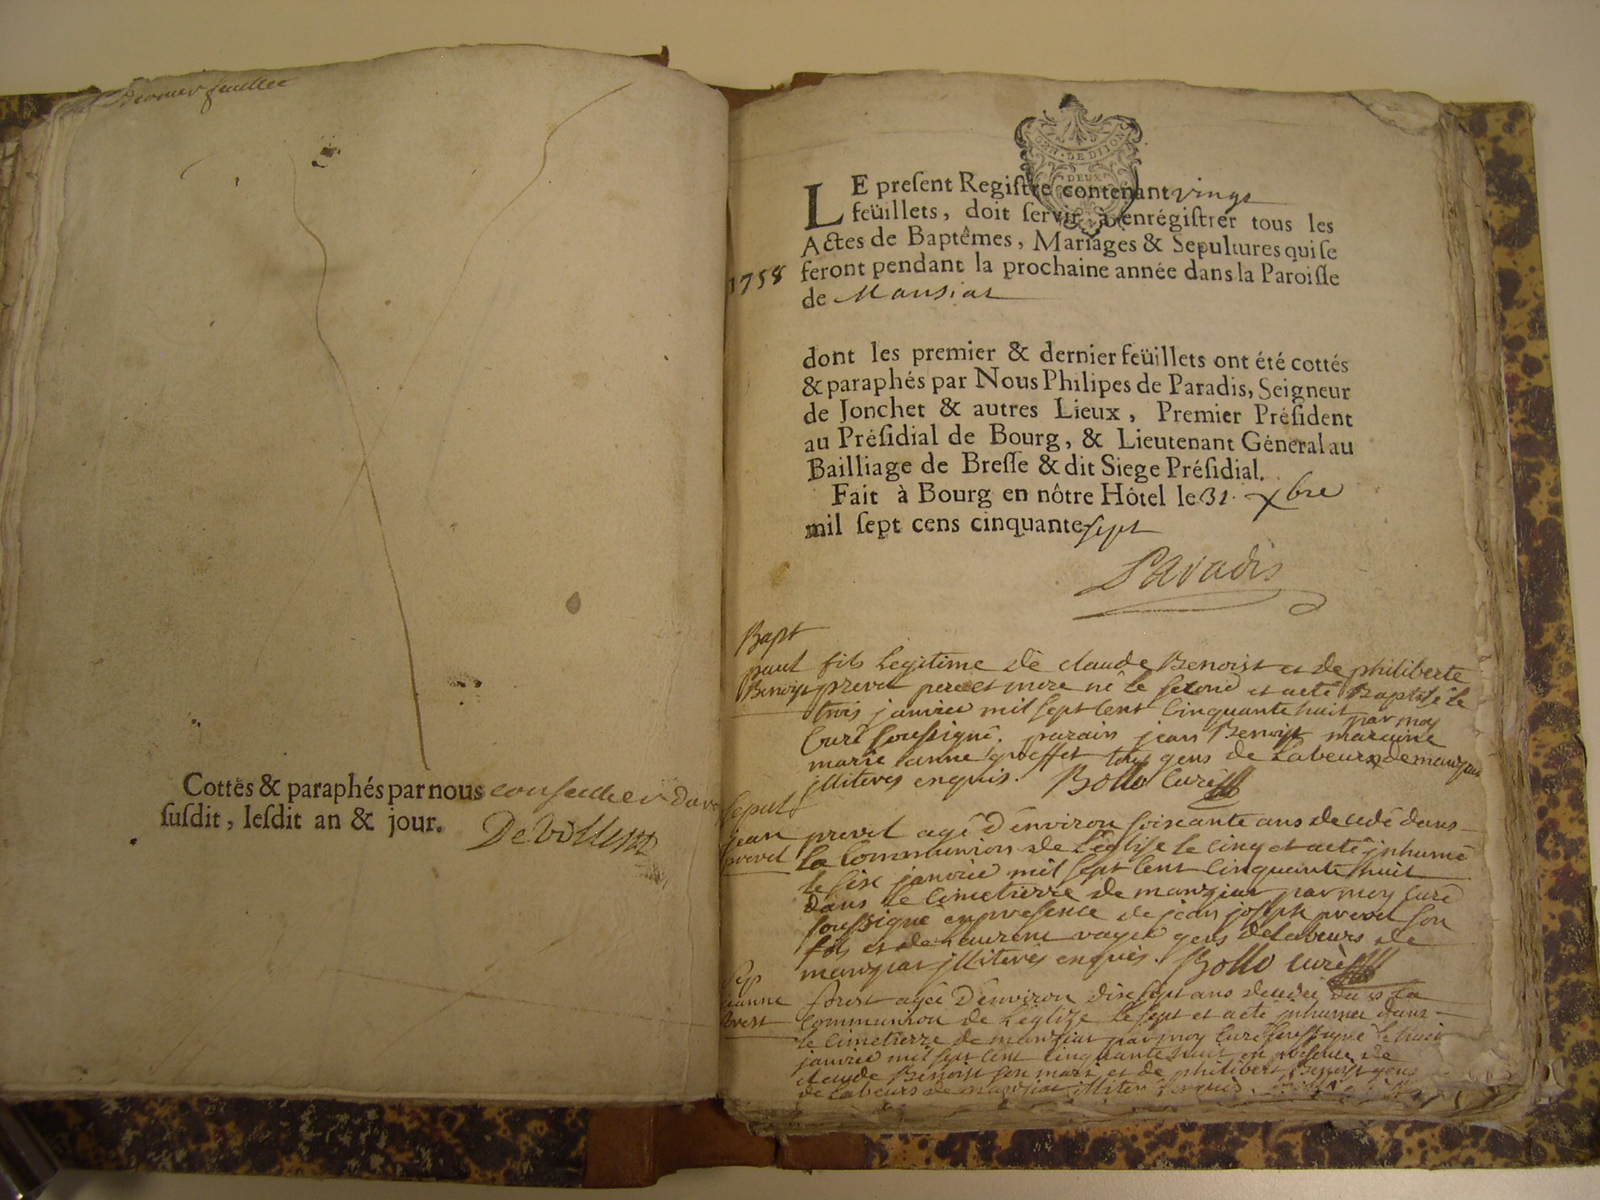 Dernier feuillet
Cottés & paraphés par nous conseiller
susdit, lesdit an & jour.
GEN · DE DIJON
DEUX
LE present Registre contenant vingt
feüillets, doit servir à enrégistrer tous les
Actes de Baptêmes, Mariages & Sepultures qui se
1758 feront pendant la prochaine année dans la Paroisse
de Mansiat
dont les premier & dernier feüillets ont été cottés
& paraphés par Nous Philipes de Paradis, Seigneur
de Jonchet & autres Lieux, Premier Président
au Présidial de Bourg, & Lieutenant Géneral au
Bailliage de Bresse & dit Siege Présidial.
Fait à Bourg en nôtre Hôtel le 31 xbre
mil sept cens cinquante sept
Paradis
Bapt
paul fils Legitime de claude Benoist et de philiberte
Benoist prevel pere et mere né le second et a eté Baptisé le
trois janvier mil sept cent cinquante huit par moy
Curé soussigné. parain jean Benoist maraine
marie anne goeffet tous gens de Labeurs de manziat
illiteres enquis. Bollo Curé
Sepult
jean prevel agé d'environ soixante ans decedé dans
prevel la Communion de L'église le cinq et a eté inhumé
le six janvier mil sept cent cinquante huit
dans le cimetierre de manziat par moy Curé
soussigné en presence de jean joseph prevel son
fils et de Laurent voyer gens de Labeurs de
manziat illiteres enquis. Bollo curé
Sep
jeanne forest agée d'environ dix sept ans decedée dans la
forest Communion de L'églize le sept et a eté inhumée dans
le cimetierre de manziat par moy Curé soussigné le huit
janvier mil sept cent cinquante huit en presence de
claude Benoist son mari et de philibert Benoist gens
de Labeurs de manziat illiteres enquis.